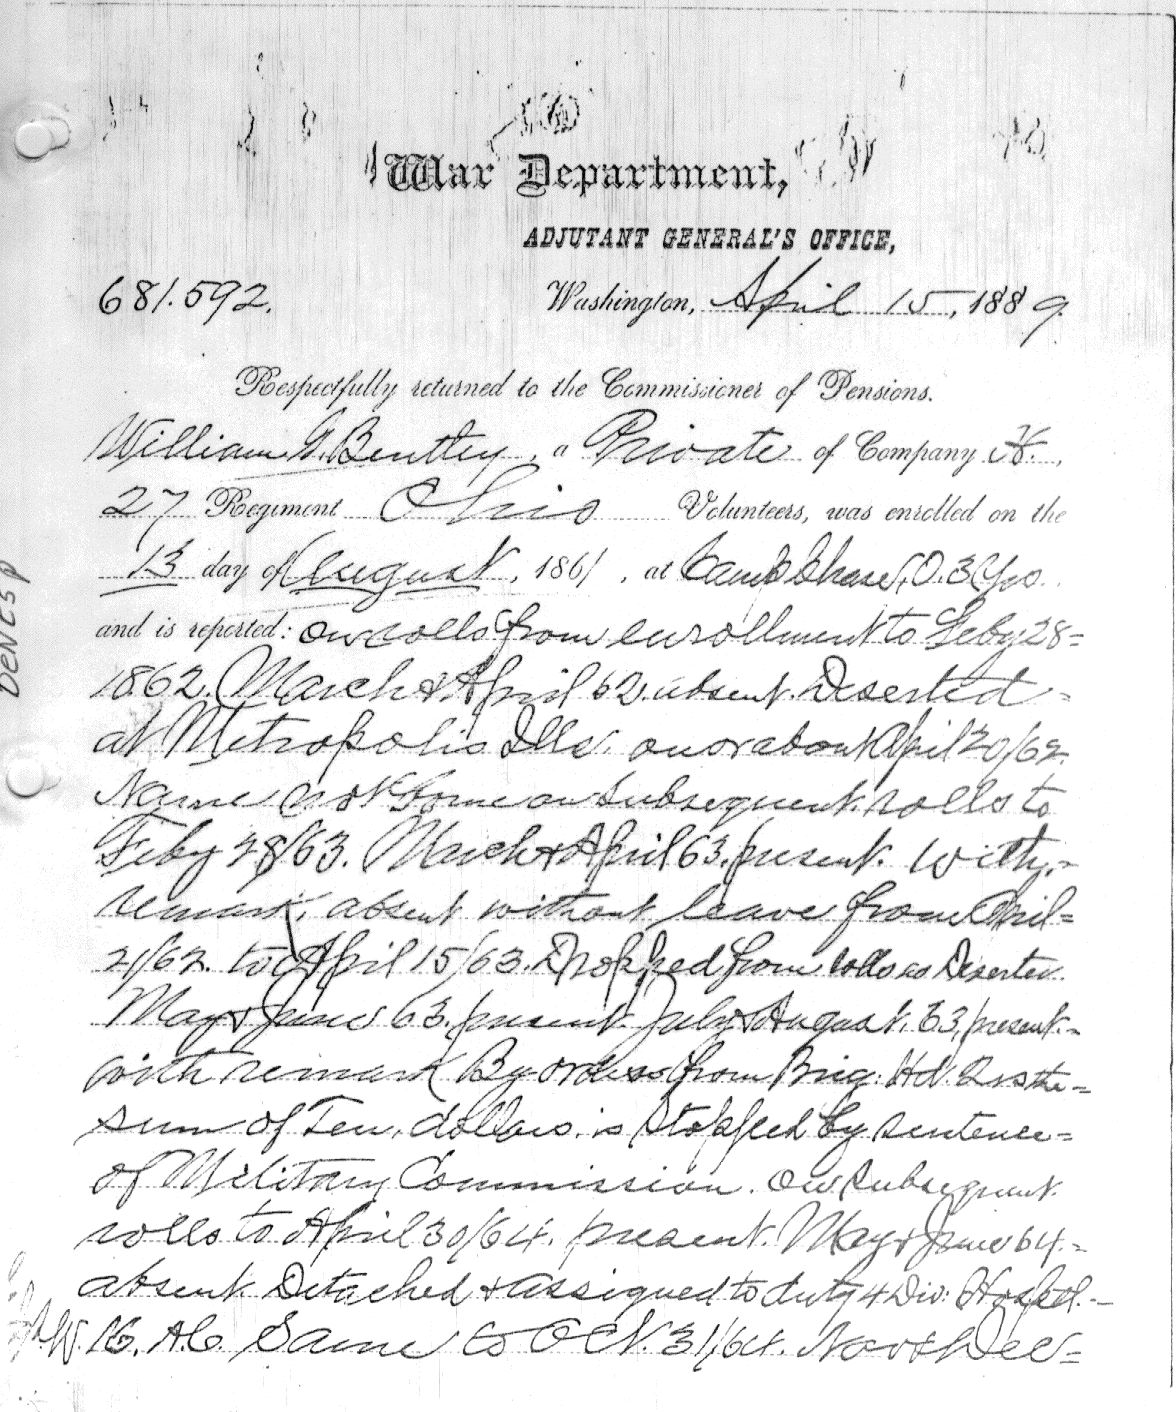 War Department,
ADJUTANT GENERAL'S OFFICE,
681.592. Washington, April 15, 1889.
Respectfully returned to the Commissioner of Pensions.
William G. Bentley, a Private of Company K.,
27 Regiment Ohio Volunteers, was enrolled on the
13 day of August, 1861, at Camp Chase, O. 3 Yrs.
and is reported: on rolls from enrollment to Feby 28-
1862. March & April 62. absent. Deserted -
at Metropolis Ills. on or about April 20/62.
Name not borne on subsequent rolls to
Feby 28/63. March & April 63. present. With -
remark, absent without leave from April -
21/62. to April 15/63. Dropped from rolls as Deserter.
May & June 63. present. July & August. 63, present. -
with remark By orders from Brig. Hd. Qrs the -
sum of Ten. dollars. is stopped by sentence -
of Military Commission. On subsequent.
rolls to April 30/64. present. May & June 64. -
absent Detached & assigned to duty 4 Div: Hospl. -
16. A.C. Same to Oct. 31/64. Nov & Dec -